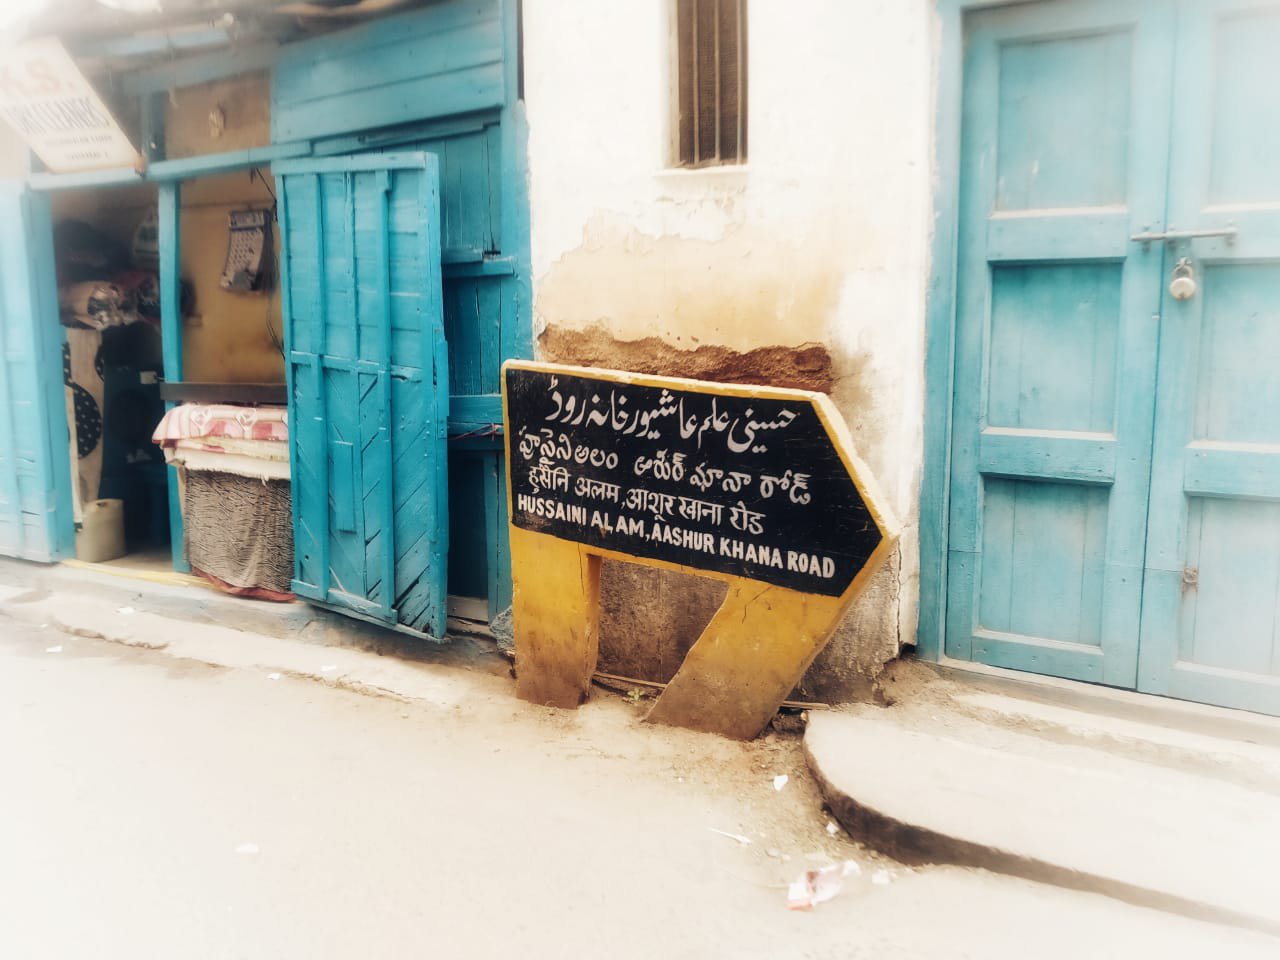 K.S.
DRY CLEANERS
حسینی علم عاشور خانہ روڈ
హుసైని అలం ఆషుర్ ఖానా రోడ్
हुसैनि अलम,आशूर खाना रोड
HUSSAINI ALAM,AASHUR KHANA ROAD